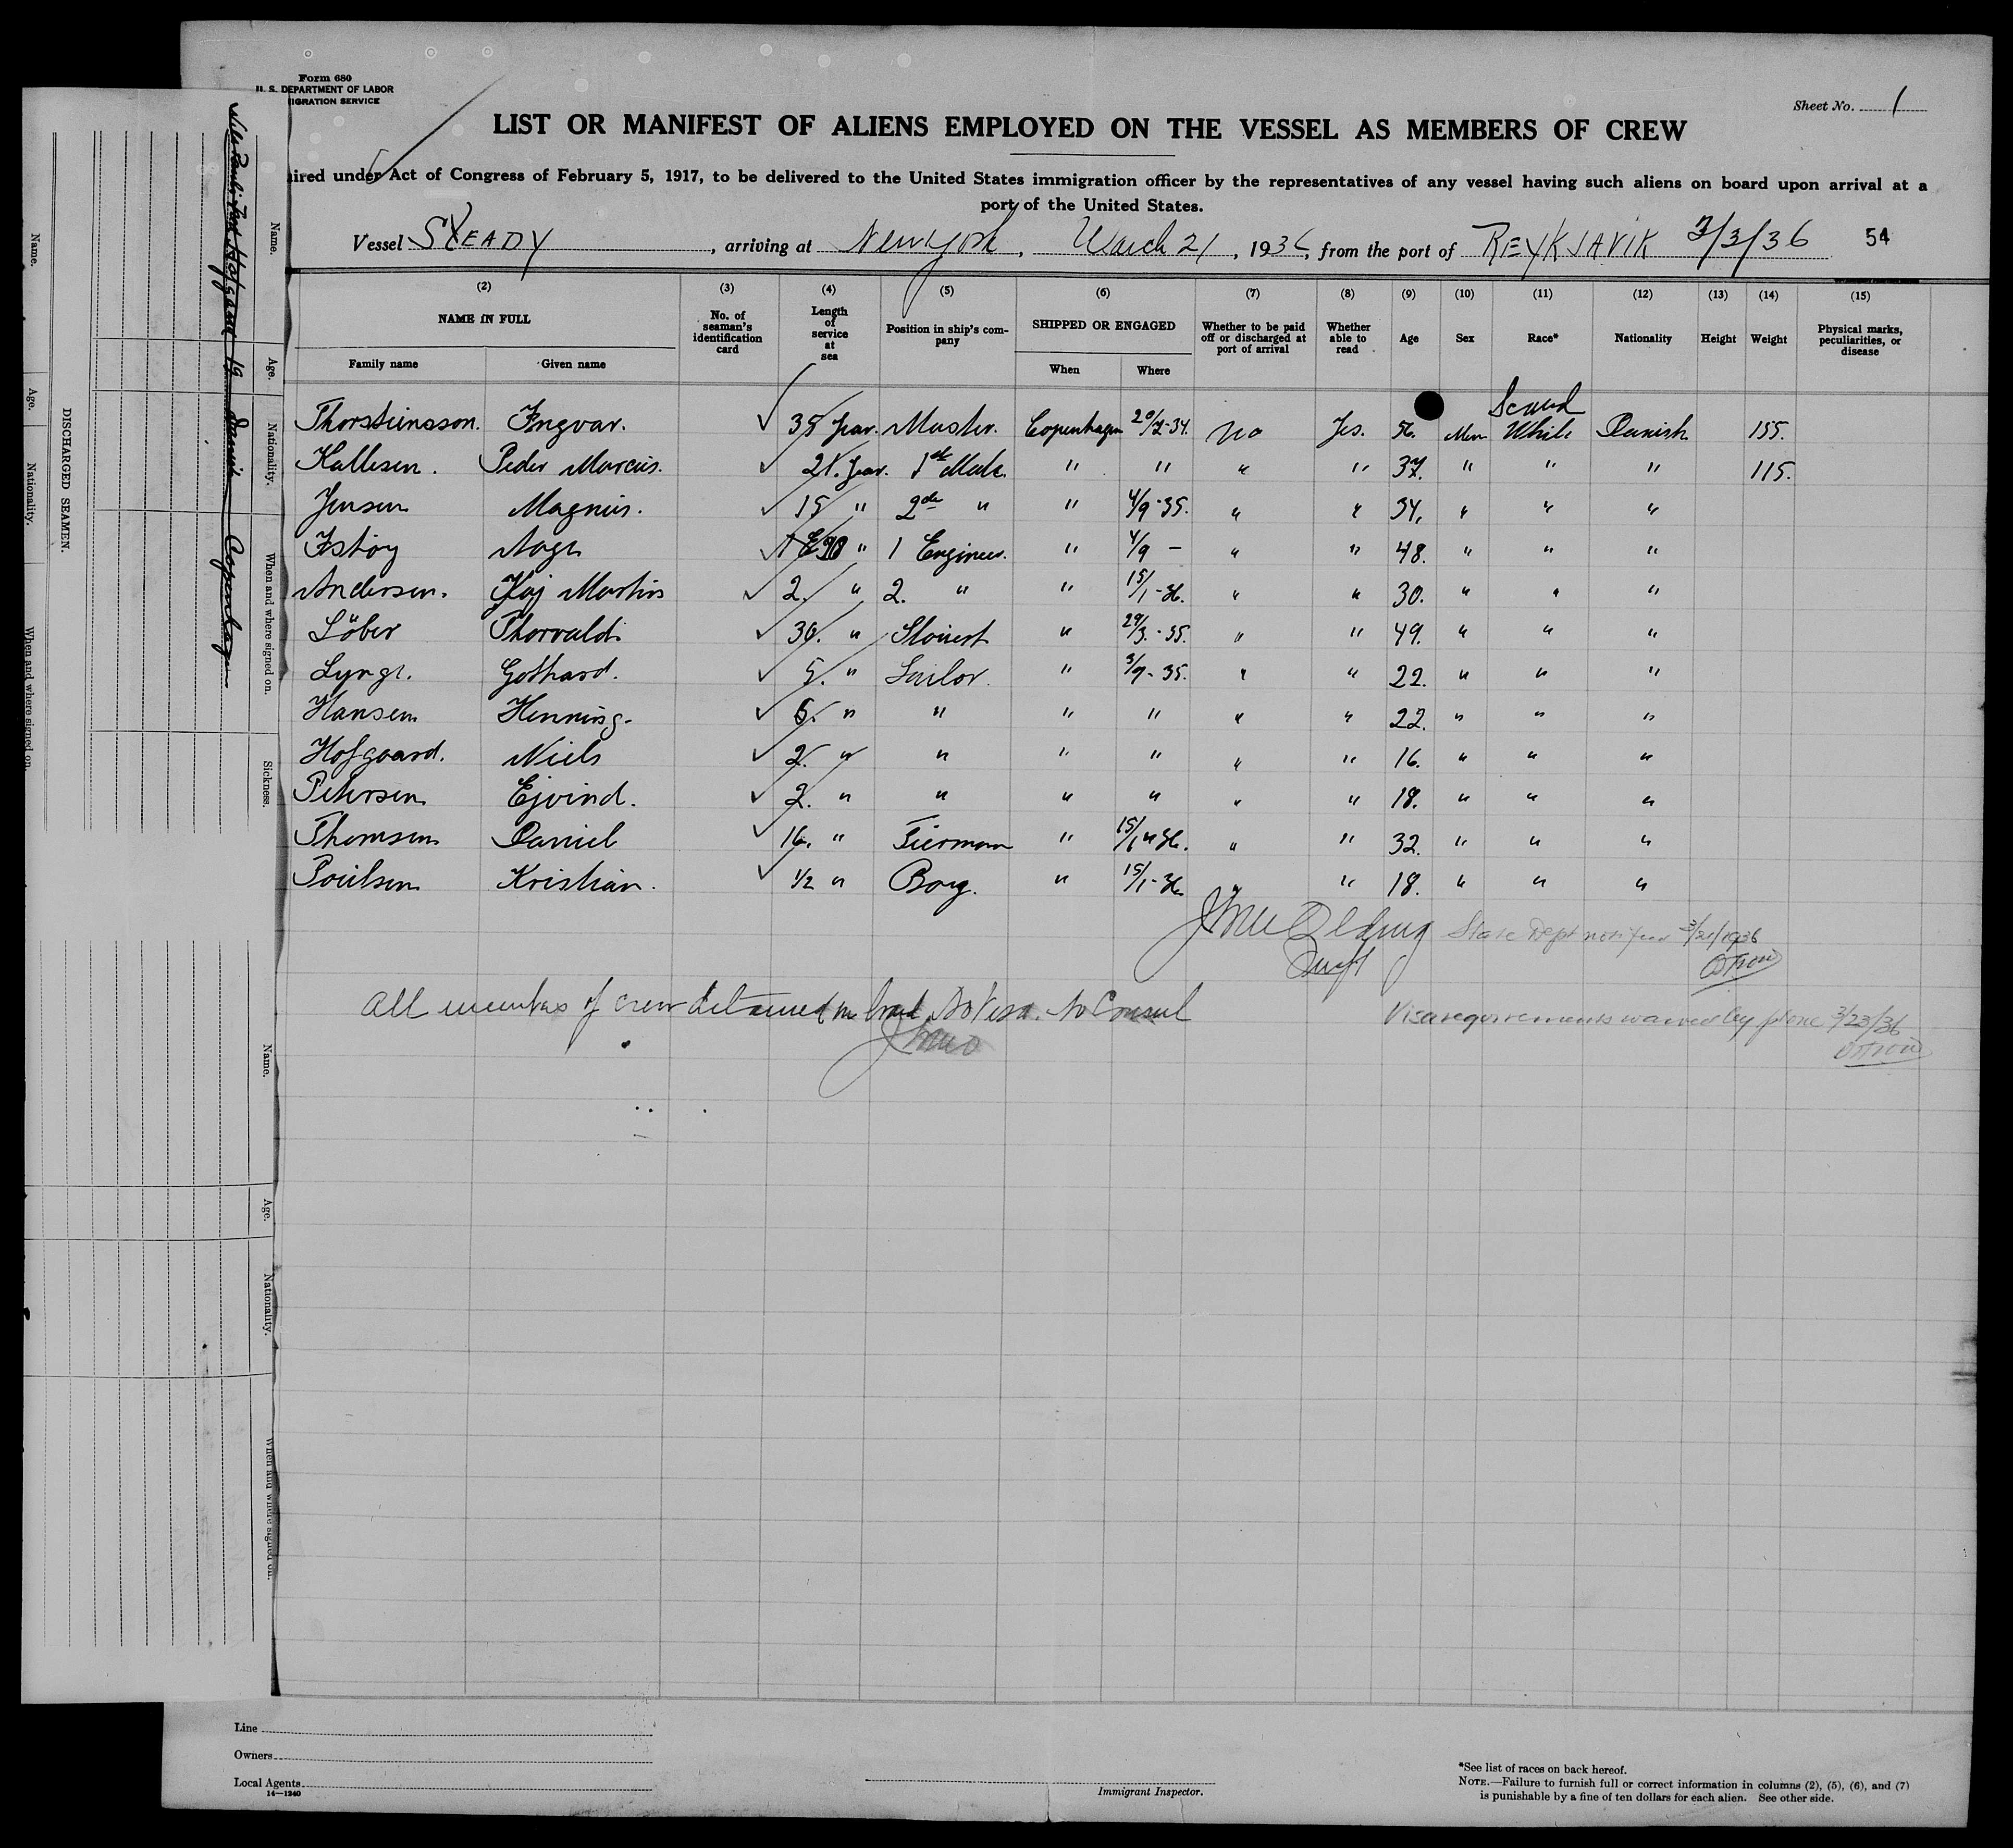 Form 680
U. S. DEPARTMENT OF LABOR
IGRATION SERVICE
Sheet No. 1
LIST OR MANIFEST OF ALIENS EMPLOYED ON THE VESSEL AS MEMBERS OF CREW
ired under Act of Congress of February 5, 1917, to be delivered to the United States immigration officer by the representatives of any vessel having such aliens on board upon arrival at a
port of the United States.
Vessel STEADY, arriving at New York, March 21, 1936, from the port of REYKJAVIK 3/3/36 54
(2) (3) (4) (5) (6) (7) (8) (9) (10) (11) (12) (13) (14) (15)
NAME IN FULL
Family name Given name
No. of seaman's identification card
Length of service at sea
Position in ship's company
SHIPPED OR ENGAGED
When Where
Whether to be paid off or discharged at port of arrival
Whether able to read
Age
Sex
Race*
Nationality
Height
Weight
Physical marks, peculiarities, or disease
Scand
Thorsteinsson. Ingvar. 35 year. Master. Copenhagen 20/2-34. No Yes. 56. Men White Danish 155.
Kallesen. Peder Marcus. 21. year. 1 Mate. " " " " 37. " " " 115.
Jensen Magnus. 15 " 2de " " 4/9-35. " " 34. " " "
Istöy Aage " 1 Engineer. " 4/9 — " " 48. " " "
Andersen. Kaj Martin 2. " 2. " " 15/1-36. " " 30. " " "
Löber Thorvald. 30. " " 29/3.-35. " " 49. " " "
Lynge. Gothard. 5. " Sailor. " 3/9-35. " " 22. " " "
Hansen Henning. 6. " " " " " " 22. " " "
Hofgaard. Niels 2. " " " " " " 16. " " "
Petersen Ejvind. 2. " " " " " " 18. " " "
Thomsen Daniel 16. " Fierman " 15/1 " 36. " " 32. " " "
Poulsen Kristian. 1/2 " Boy. " 15/1-36. " " 18. " " "
State Dept notified 3/21/1936
All members of crew detained on board No Visa. No Consul
Visa requirements waived by phone 3/23/36
Line
Owners
Local Agents
14—1240
Immigrant Inspector.
*See list of races on back hereof.
NOTE.—Failure to furnish full or correct information in columns (2), (5), (6), and (7)
is punishable by a fine of ten dollars for each alien. See other side.
DISCHARGED SEAMEN.
Name. Age. Nationality. When and where signed on.
Name. Age. Nationality. When and where signed on. Sickness.
Hofgaard 19 Danish Copenhagen
Name. Age. Nationality. When and where signed on.